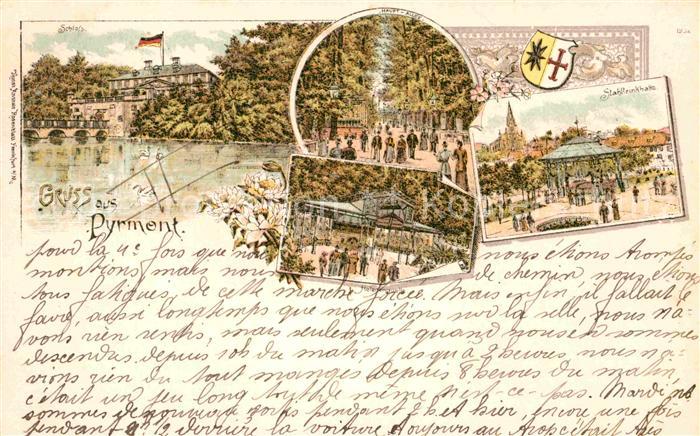 Schloss.
HAUPT-ALLEE
Stahltrinkhalle.
Gruss
aus
Pyrmont.
pour la 4e fois que nous nous étions trompés
montions, mais nous de chemin, nous étions
tous fatigués de cette marche forcée. Mais enfin, il fallait le
faire, aussi longtemps que nous étions sur la selle, nous n'a-
vons rien sentis, mais seulement quand nous en sommes
descendus. depuis 10h du matin jusqu'à 3 heures, nous n'a-
vions rien du tout manges depuis 8 heures du matin,
c'était un peu long tout de même n'est-ce-pas. Mardi ns
sommes de nouveau sortis pendant 2h et hier, encore une fois
pendant 2h 1/2 derrière la voiture toujours au trop c'était très